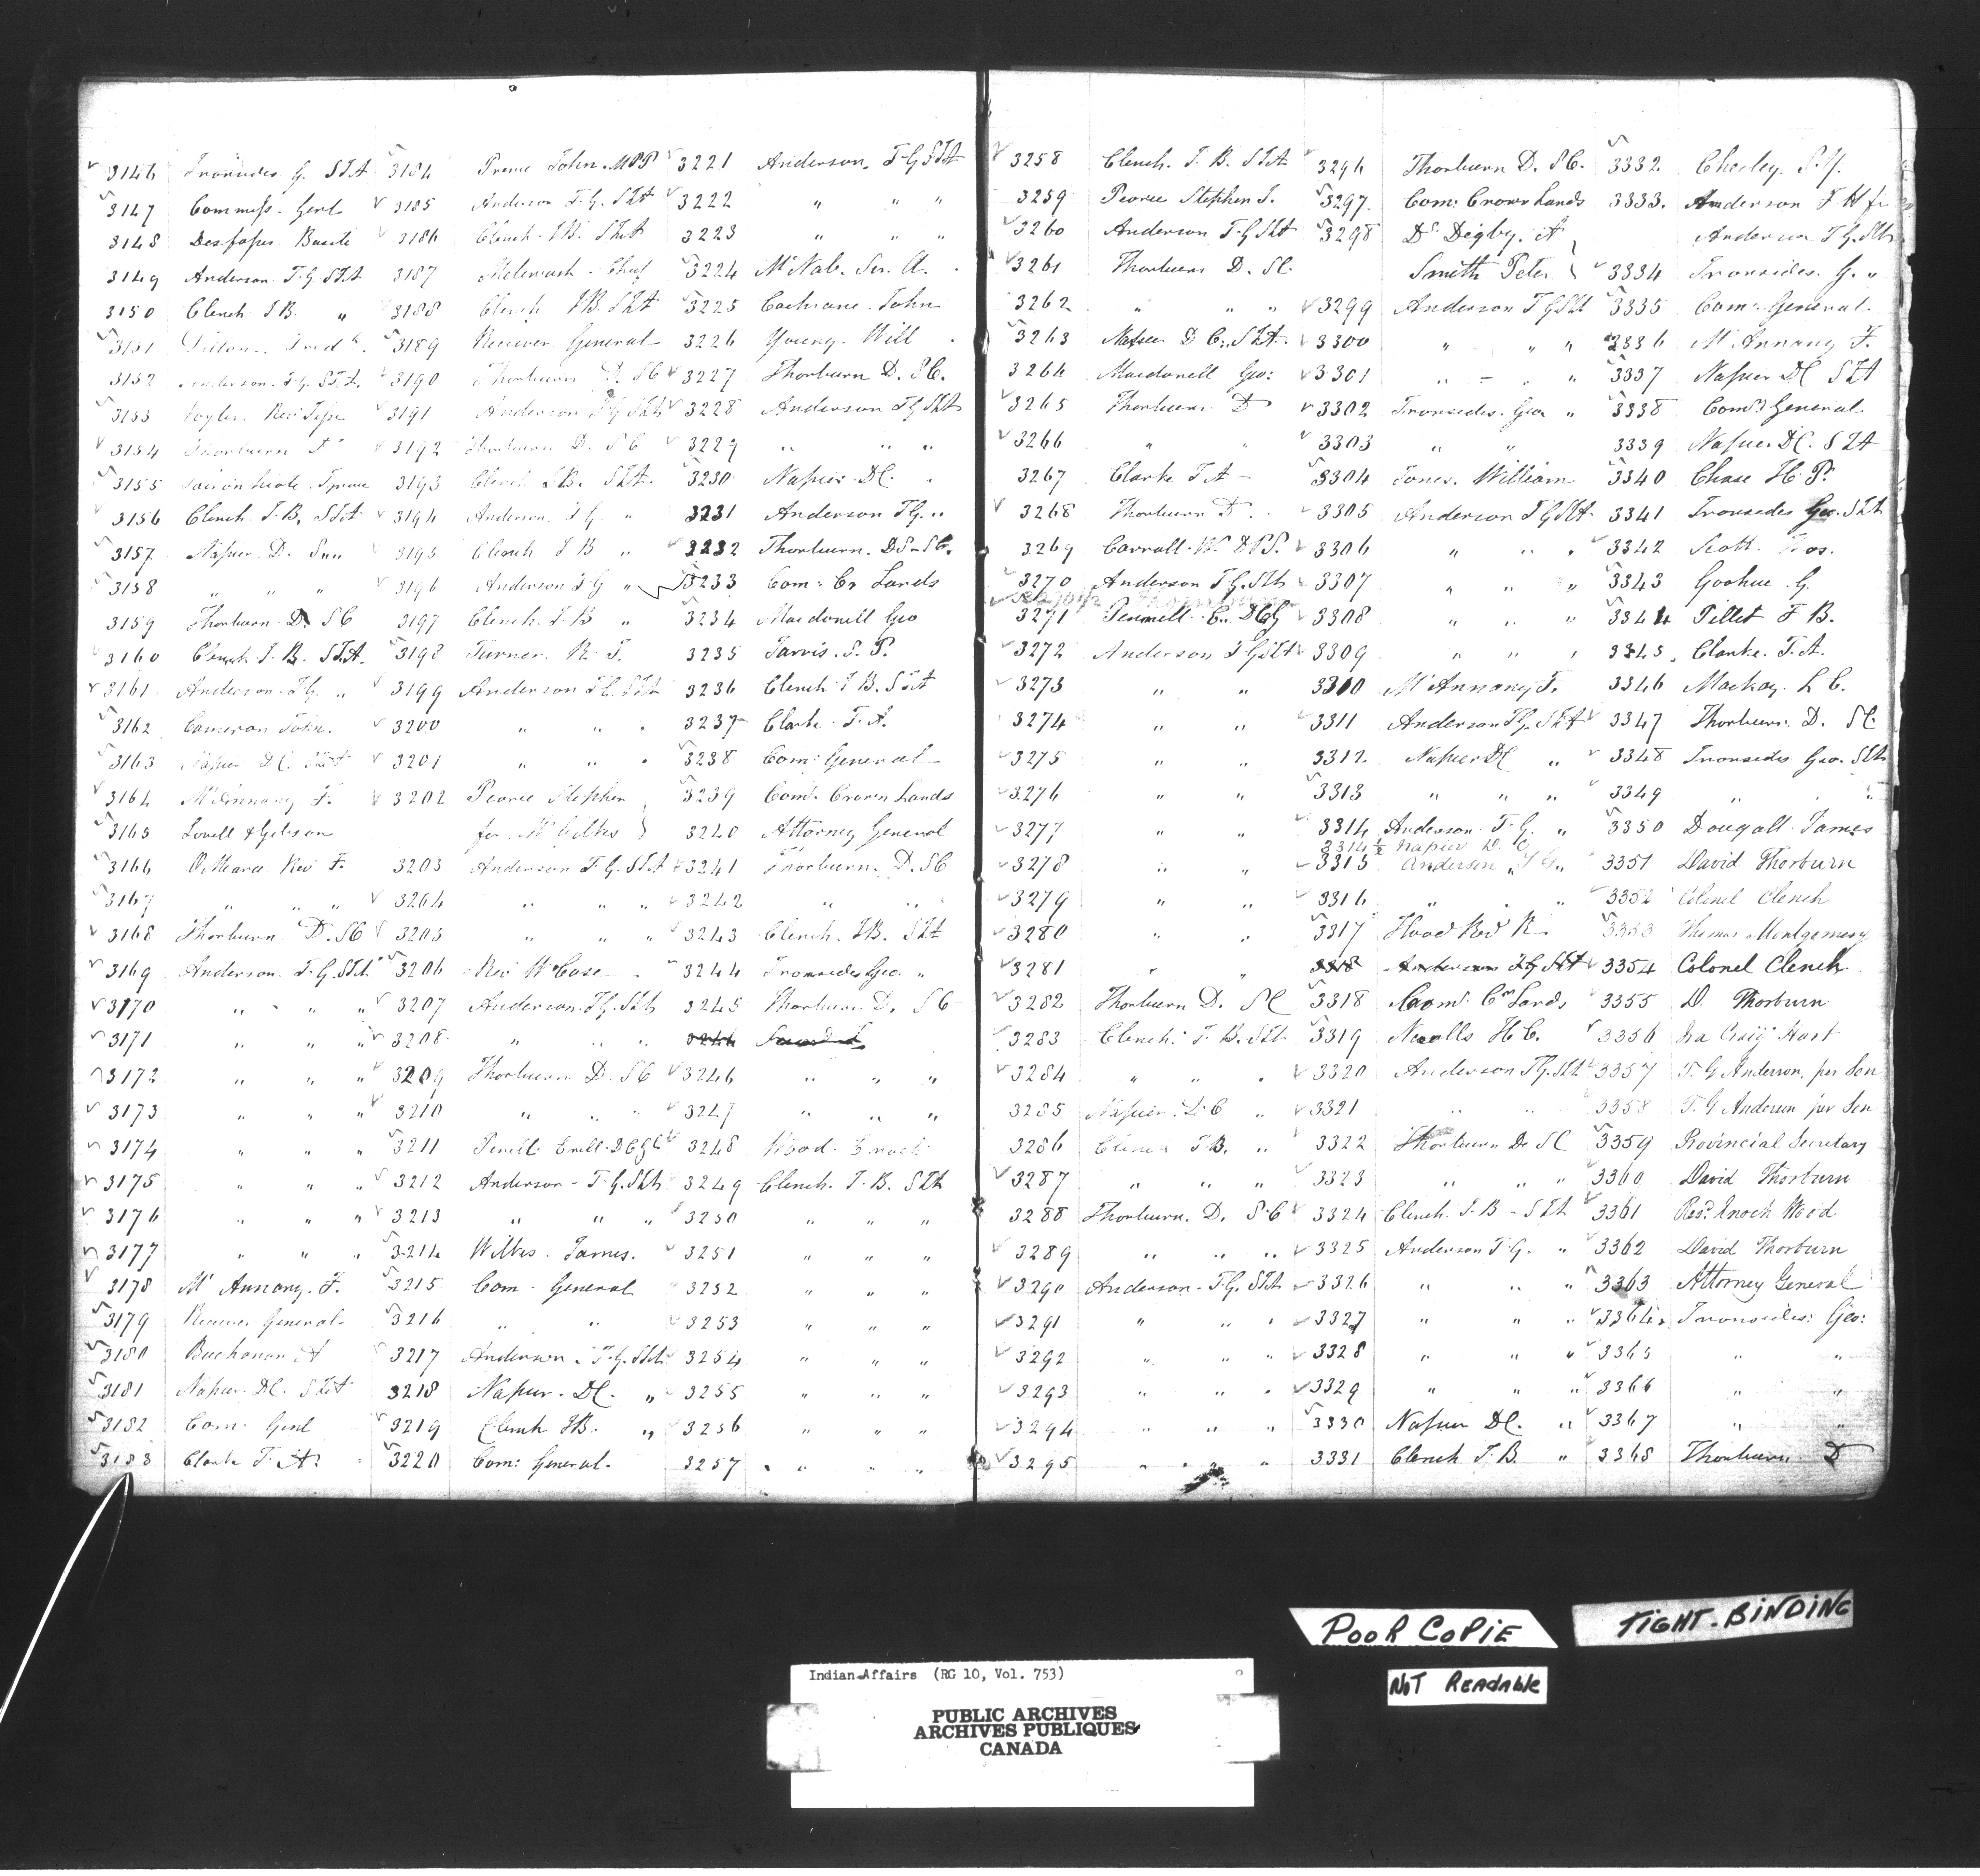 3146 Ironsides G. SIA
3147 Commissr. Genl
3148
3149 Anderson T.G. SIA
3150 Clench J.B. "
3151
3152 Anderson. T.G. SIA.
3153
3154 Thorburn D
3155
3156 Clench J.B. SIA
3157 Napier. D.
3158 " " "
3159 Thorburn D. SC
3160 Clench J.B. SIA.
3161 Anderson. TG. "
3162 Cameron John.
3163 Napier D.C. SIA
3164 McAnnany F.
3165 Lovell & Gibson
3166 O'Meara Rev F.
3167 " " "
3168 Thorburn D. SC
3169 Anderson. T.G. SIA
3170 " " "
3171 " " "
3172 " " "
3173 " " "
3174 " " "
3175 " " "
3176 " " "
3177 " " "
3178 Mc Annany. F.
3179 Receiver General
3180 Buchanan A
3181 Napier. DC. SIA
3182 Com: Genl
3183 Clarke T. A.
3184 John. MPP
3185 Anderson T.G. SIA
3186 Clench. J.B. SIA
3187 Chief
3188 Clench J.B. SIA
3189 Receiver General
3190 Thorburn D. SC
3191 Anderson T.G. SIA
3192 Thorburn D. SC
3193 Clench J.B. SIA.
3194 Anderson. T.G. "
3195 Clench J B "
3196 Anderson T G "
3197 Clench. J.B "
3198 Turner. R. J.
3199 Anderson T.G. SIA
3200 " " "
3201 " " "
3202 Pearce Stephen
for Mr
3203 Anderson T.G. SIA
3204 " " "
3205 " " "
3206 Rev W Case
3207 Anderson. T.G. SIA
3208 " " "
3209 Thorburn D. SC
3210 " " "
3211
3212 Anderson - T.G. SIA
3213 " " "
3214 Wilkes. James.
3215 Com - General
3216 " "
3217 Anderson. T.G. SIA
3218 Napier. DC. "
3219 Clench J.B. "
3220 Com: General.
3221 Anderson. T.G SIA
3222 " " "
3223 " " "
3224 McNab. Sir. A.
3225 Cochrane. John
3226 Young. Will
3227 Thorburn D. SC.
3228 Anderson T G SIA
3229 " " "
3230 Napier. DC.
3231 Anderson T G. "
3232 Thorburn. D. SC.
3233 Com: Cr Lands
3234 Macdonell Geo
3235 Jarvis. S. P.
3236 Clench J B. SIA
3237 Clarke. T. A.
3238 Com: General
3239 Comr. Crown Lands
3240 Attorney General
3241 Thorburn. D. SC
3242 " "
3243 Clench. J.B. SIA
3244 Ironsides Geo. "
3245 Thorburn D. SC
3246 " " "
3247 " " "
3248 Wood. Enoch
3249 Clench. J. B. SIA
3250 " " "
3251 " " "
3252 " " "
3253 " " "
3254 " " "
3255 " " "
3256 " " "
3257 " " "
3258 Clench. J. B. SIA
3259 Pearce Stephen J.
3260 Anderson T G SIA
3261 Thorburn D. SC.
3262 " " "
3263 Napier D C. SIA.
3264 Macdonell Geo:
3265 Thorburn. D
3266 " "
3267 Clarke T A -
3268 Thorburn D.
3269 Carroll.
3270 Anderson T.G. SIA
3271 C. DCG
3272 Anderson T G SIA
3273 " "
3274 " "
3275 " "
3276 " "
3277 " "
3278 " "
3279 " "
3280 " "
3281 " "
3282 Thorburn D. SC
3283 Clench. J. B. SIA
3284 " " "
3285 Napier. D.C "
3286 Clench J.B. "
3287 " " "
3288 Thorburn. D. SC
3289 " " "
3290 Anderson - T.G. SIA
3291 " " "
3292 " " "
3293 " " "
3294 " " "
3295 " " "
3296 Thorburn D. SC.
3297 Com: Crown Lands
3298 Dr Digby. A
Smith Peter
3299 Anderson T G SIA
3300 " " "
3301 " " "
3302 Ironsides. Geo "
3303 " "
3304 Jones. William
3305 Anderson T G SIA
3306 " " "
3307 " " "
3308 " " "
3309 " " "
3310 McAnnany F.
3311 Anderson T.G. SIA
3312 Napier DC "
3313 " " "
3314 Anderson T.G. "
3314½ Napier D. C
3315 Anderson T G "
3316 " " "
3317 Flood Rev R
3318 Anderson T.G SIA
3318 Comr. Crn Lands
3319 H C.
3320 Anderson T G. SIA
3321 " " "
3322 Thorburn D. SC
3323 " " "
3324 Clench. J. B - SIA
3325 Anderson T G. "
3326 " " "
3327 " " "
3328 " " "
3329 " " "
3330 Napier DC. "
3331 Clench J. B. "
3332 Chesley. S. Y.
3333. Anderson F H fr
Anderson T G. SIA
3334 Ironsides. G. "
3335 Comr. General
3336 McAnnany F.
3337 Napier DC SIA
3338 Comr. General
3339 Napier DC. SIA
3340 Chase H. P.
3341 Ironsides Geo. SIA
3342 Scott.
3343 Goohue. G.
3344 Tillet F B.
3345 Clarke. T. A.
3346 Mackay. L C.
3347 Thorburn. D. SC.
3348 Ironsides Geo. SIA
3349 " "
3350 Dougall. James
3351 David Thorburn
3352 Colonel Clench
3353 Thomas Montgomery
3354 Colonel Clench
3355 D. Thorburn
3356 Ira Craig Hart
3357 T. G Anderson, per Son
3358 T. G Anderson per Son
3359 Provincial Secretary
3360 David Thorburn
3361 Revd. Enoch Wood
3362 David Thorburn
3363 Attorney General
3364 Ironsides: Geo:
3365 " "
3366 " "
3367 " "
3368 Thorburn. D
POOR COPIE
TIGHT. BINDING
NOT READABLE
Indian Affairs (RG 10, Vol. 753)
PUBLIC ARCHIVES
ARCHIVES PUBLIQUES
CANADA